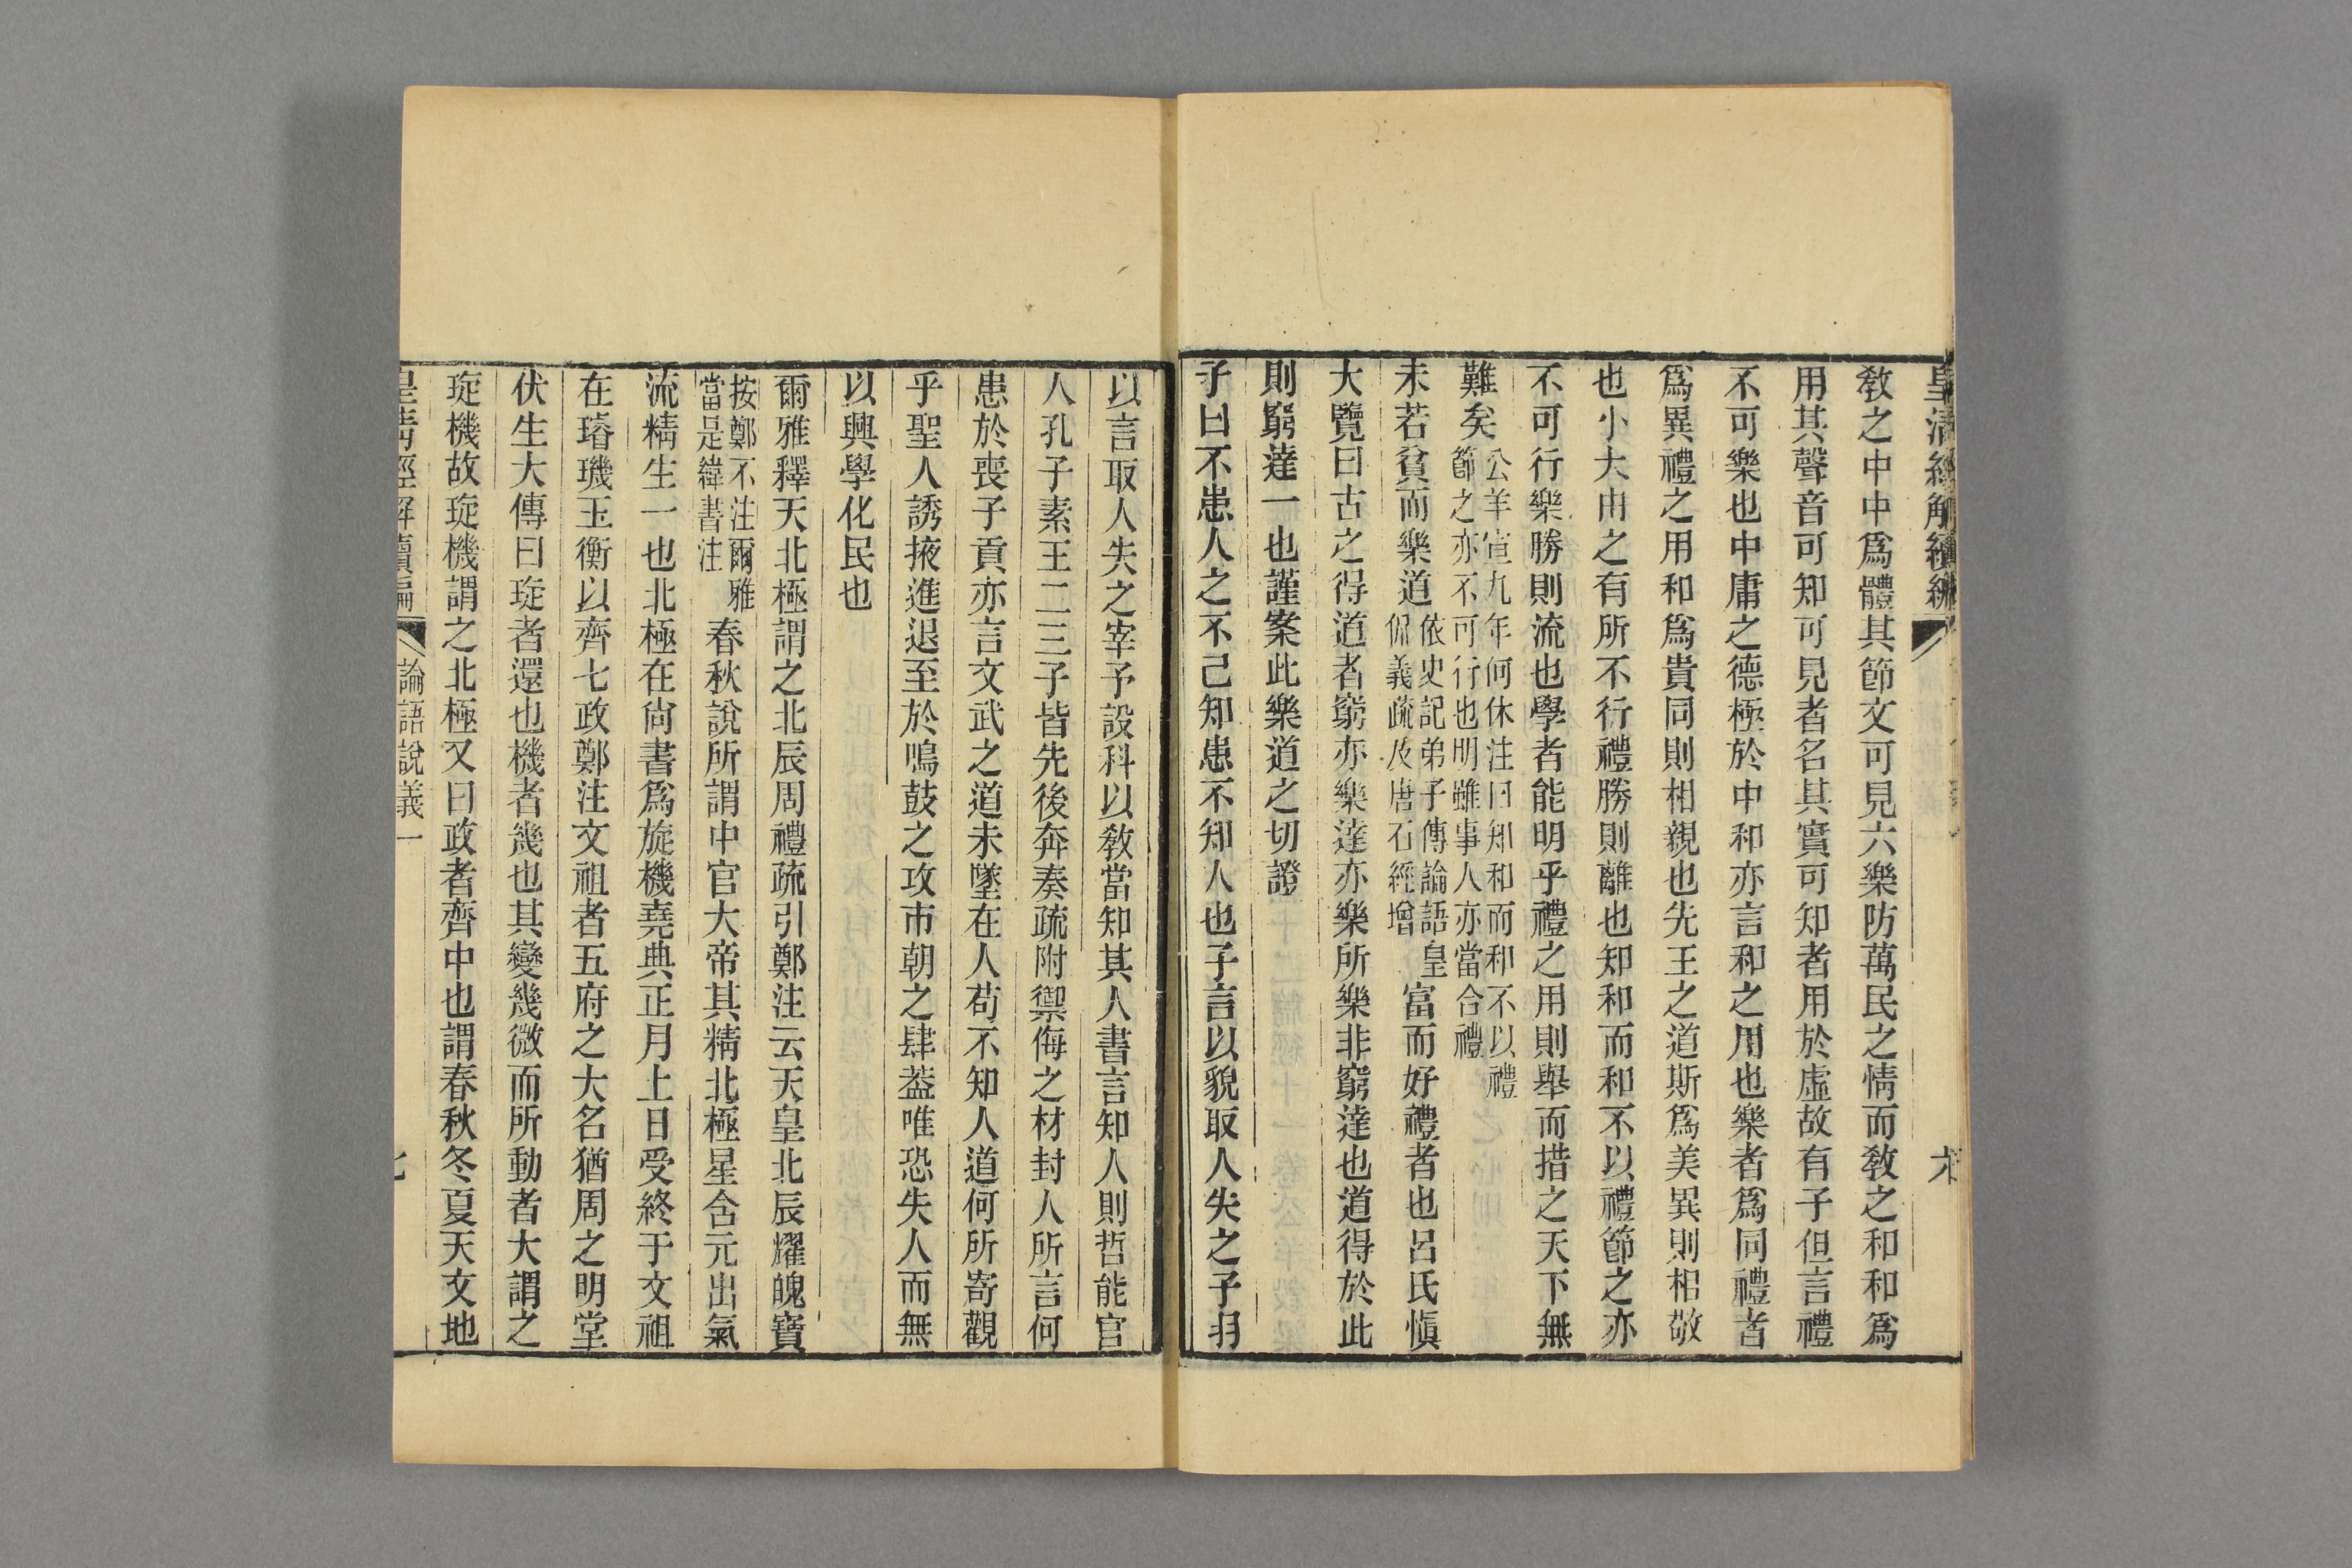 皇清經解續編
六
教之中中爲體其節文可見六樂防萬民之情而教之和和爲
用其聲音可知可見者名其實可知者用於虛故有子但言禮
不可樂也中庸之德極於中和亦言和之用也樂者爲同禮者
爲異禮之用和爲貴同則相親也先王之道斯爲美異則相敬
也小大由之有所不行禮勝則離也知和而和不以禮節之亦
不可行樂勝則流也學者能明乎禮之用則舉而措之天下無
難矣公羊宣九年何休注曰知和而和不以禮節之亦不可行也明雖事人亦當合禮
未若貧而樂道依史記弟子傳論語皇侃義疏及唐石經增富而好禮者也呂氏愼
大覽曰古之得道者窮亦樂達亦樂所樂非窮達也道得於此
則窮達一也謹案此樂道之切證
子曰不患人之不己知患不知人也子言以貌取人失之子羽
以言取人失之宰予設科以教當知其人書言知人則哲能官
人孔子素王二三子皆先後奔奏疏附禦侮之材封人所言何
患於喪子貢亦言文武之道未墜在人苟不知人道何所寄觀
乎聖人誘掖進退至於鳴鼓之攻市朝之肆葢唯恐失人而無
以興學化民也
爾雅釋天北極謂之北辰周禮疏引鄭注云天皇北辰耀魄寶
按鄭不注爾雅當是緯書注春秋說所謂中官大帝其精北極星含元出氣
流精生一也北極在尙書爲旋機堯典正月上日受終于文祖
在璿璣玉衡以齊七政鄭注文祖者五府之大名猶周之明堂
伏生大傳曰琁者還也機者幾也其變幾微而所動者大謂之
琁機故琁機謂之北極又曰政者齊中也謂春秋冬夏天文地
皇清經解續編
論語說義一
七